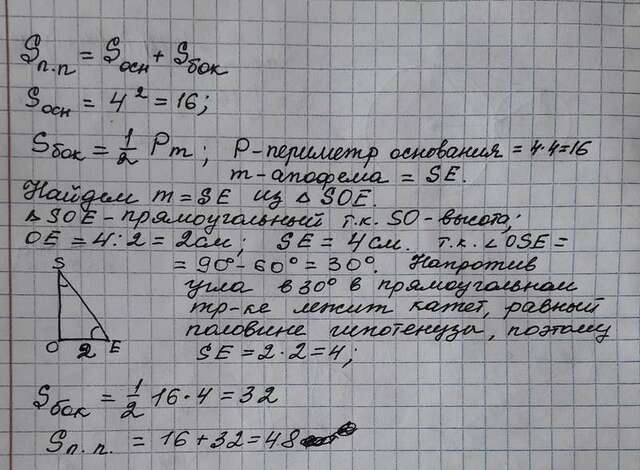 Sп.п = Sосн + Sбок
Sосн = 4² = 16;
Sбок = 1/2 Pm; P-периметр основания = 4·4=16
m-апофема = SE.
Найдём m = SE из △SOE.
△SOE-прямоугольный т.к. SO-высота;
OE = 4:2 = 2см; SE = 4см. т.к. ∠OSE =
= 90°- 60° = 30°. Напротив
угла в 30° в прямоугольном
тр-ке лежит катет, равный
половине гипотенузы, поэтому
SE = 2·2=4;
S
O 2 E
Sбок = 1/2 16·4 = 32
Sп.п. = 16+32=48